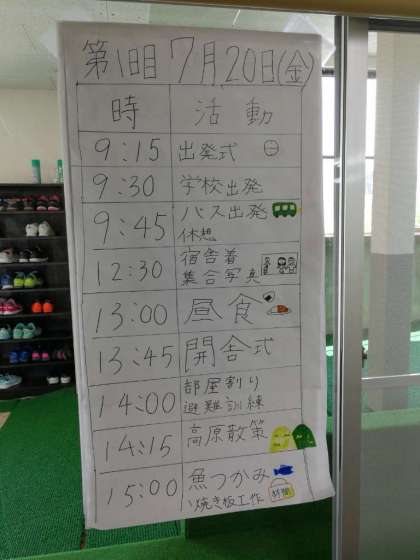 第1日目 7月20日(金)
時 活動
9:15 出発式
9:30 学校出発
9:45 バス出発
休憩
12:30 宿舎着
集合写真
13:00 昼食
13:45 開舎式
14:00 部屋割り
避難訓練
14:15 高原散策
15:00 魚つかみ
焼き板工作